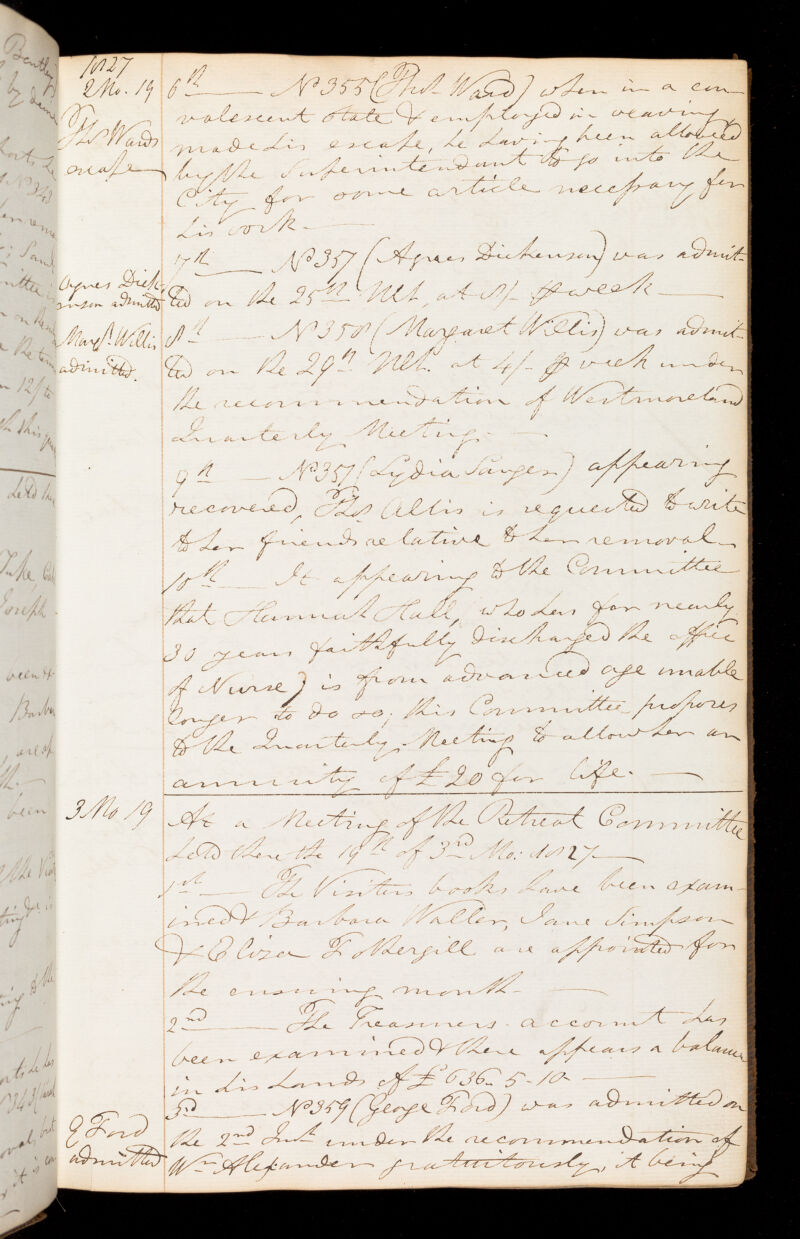 1827
2 Mo. 19
Thos Wards
escape
6th — No 355 (Thos Ward) when in a con-
valescent state & employed in weaving
made his escape, he having been allowed
by the Superintendant to go into the
City for some article necessary for
his work —
Agnes Dick-
inson admitted
7th — No 357 (Agnes Dickenson) was admit-
ted on the 25th Ult. at 8/- p week —
Margt. Willis
admitted.
8th — No 358 (Margaret Willis) was admit-
ted on the 29th Ult. at 4/- p week under
the recommendation of Westmoreland
Quarterly Meeting. —
9th — No 351 (Lydia) appearing
recovered, Thos Allis is requested to write
to her friends relative to her removal —
10th — It appearing to the Committee
that Hannah Hall, (who has for nearly
30 years faithfully discharged the office
of Nurse) is from advanced age unable
longer to do so; this Committee proposes
to the Quarterly Meeting to allow her an
annuity of £20 for life. —
3 Mo 19
At a Meeting of the Retreat Committee
held there the 19th of 3rd Mo: 1827 —
1st — The Visitors books have been exam-
ined & Barbara Waller, Jane Simpson
& Eliza Fothergill are appointed for
the ensuing month. —
2nd — The Treasurers account has
been examined & there appears a balance
in his hands of £636.5.10 —
G Ford
admitted
3rd — No 359 (George Ford) was admitted on
the 2nd Inst under the recommendation of
Wm Alexander gratuitously, it being